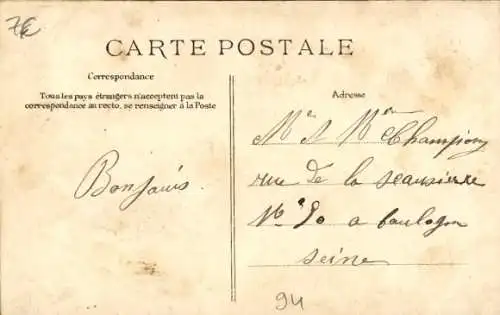 7€
CARTE POSTALE
Correspondance
Tous les pays étrangers n'acceptent pas la
correspondance au recto, se renseigner à la Poste
Adresse
Bonjouis.
Champion
rue de la
No a
seine
94